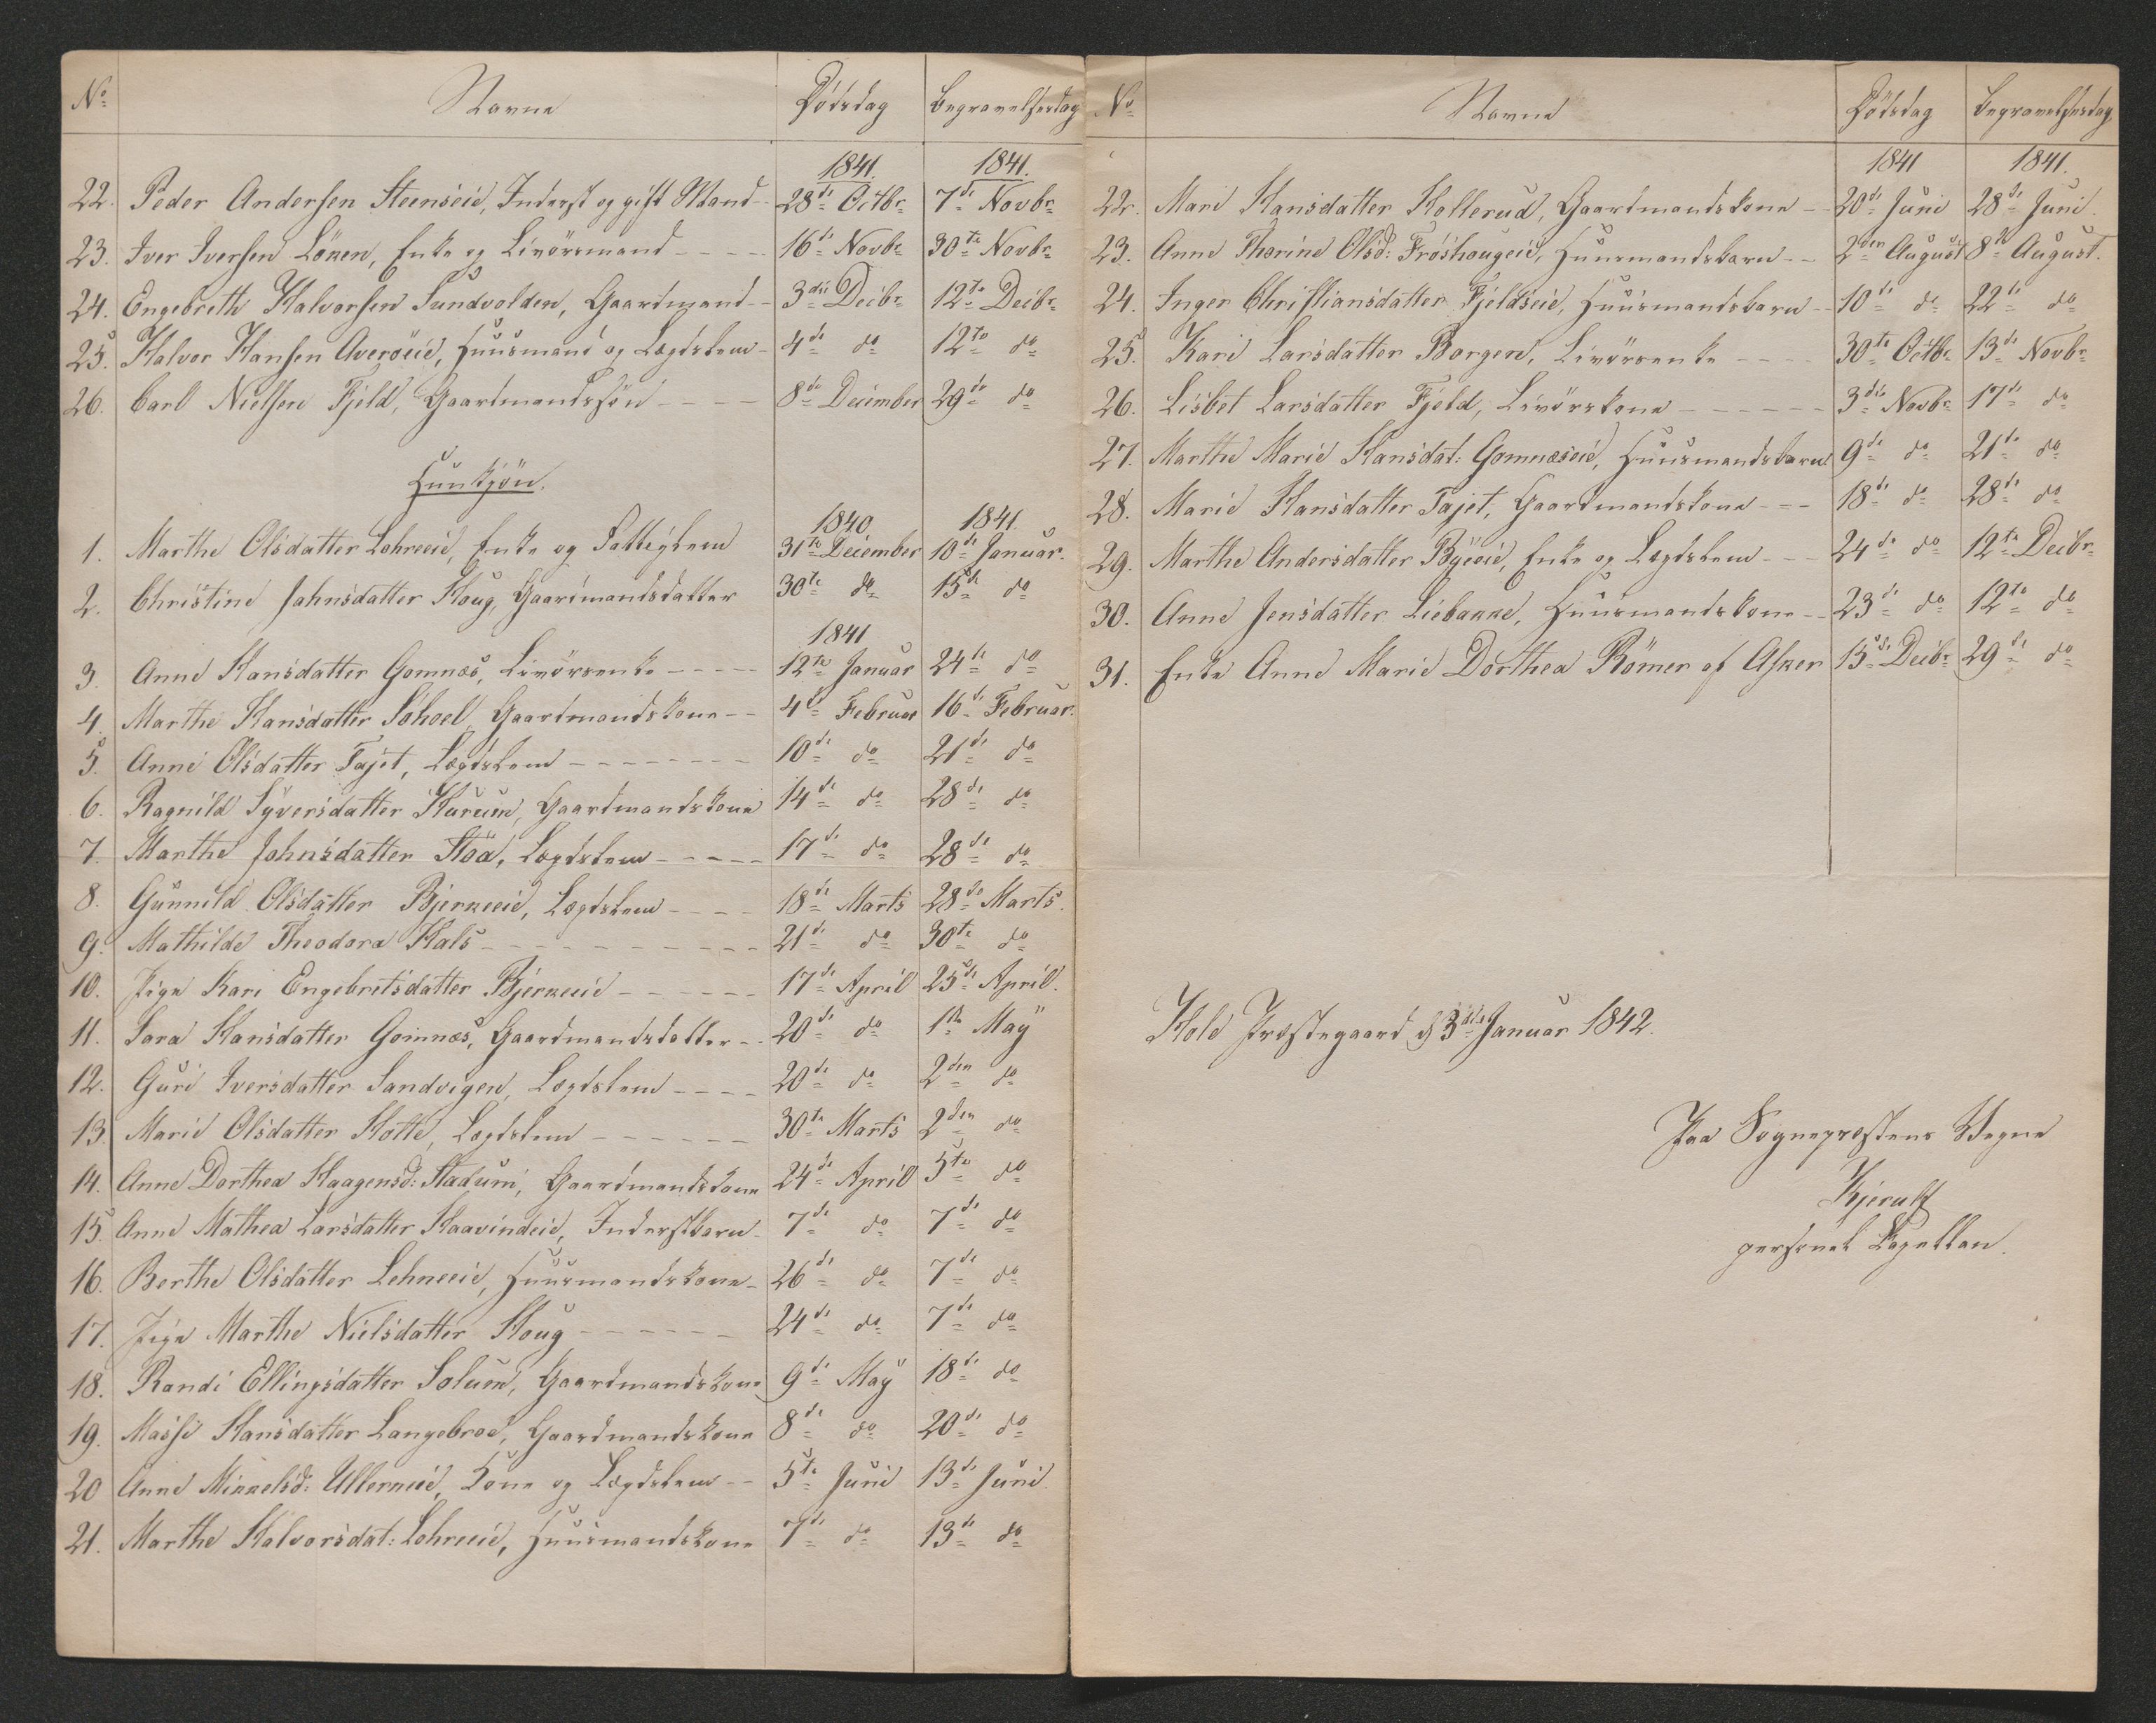 No Navne Dødsdag Begravelsesdag
1841. 1841.
22. Peder Andersen Steenseie, Inderst og gift Mand - 28de Octbr 7de Novbr
23. Iver Iversen Lönen, Enke og Livörsmand - - - - 16de Novbr 30te Novbr
24. Engebreth Halvorsen Sundvolden, Gaardmand - - 3die Decbr 12te Decbr
25. Halvor Hansen Averöeie, Huusmand og Lægdslem - 4de do 12te do
26. Carl Nielsen Fjeld, Gaardmandssön - - - - 8de December 29de do
Hunkjön.
1840 1841.
1. Marthe Olsdatter Lohreeie, Enke og Fattiglem 31te December 10de Januar.
2. Christine Jahnsdatter Houg, Gaardmandsdatter 30te do 15de do
1841
3. Anne Hansdatter Gomnæs, Livörsenke - - - - 12te Januar 24de do
4. Marthe Hansdatter Sohoel, Gaardmandskone - - 4de Februar 16de Februar.
5. Anne Olsdatter Fajet, Lægdslem - - - - - - - - 10de do 21de do
6. Ragnild Syversdatter Hurum, Gaardmandskone 14de do 28de do
7. Marthe Johnsdatter Stöa, Lægdslem - - - - - 17de do 28de do
8. Gunnild Olsdatter Bjerkeeie, Lægdslem - - - - 18de Marts 28de Marts.
9. Mathilde Theodora Hals - - - - - - - - - - 21de do 30te do
10. Pige Kari Engebretsdatter Bjerkeeie - - - - - - 17de April 25de April.
11. Sara Hansdatter Gomnæs, Gaardmandsdatter - - 20de do 1ste May
12. Guri Iversdatter Sandvigen, Lægdslem - - - - 20de do 2den do
13. Marie Olsdatter Holte, Lægdslem - - - - - - 30te Marts 2den do
14. Anne Dorthea Haagensd: Stadum, Gaardmandskone 24de April 5te do
15. Anne Mathea Larsdatter Haavindeie, Inderstbarn - 7de do 7de do
16. Berthe Olsdatter Lehneeie, Huusmandskone - 26de do 7de do
17. Pige Marthe Nielsdatter Houg - - - - - - 24de do 7de do
18. Randi Ellingsdatter Solum, Gaardmandskone 9de May 18de do
19. Massi Hansdatter Langebroe, Gaardmandskone 8de do 20de do
20 Anne Mikkelsd: Ullerneeie, Kone og Lægdslem - - 5te Juni 13de Juni
21. Marthe Halvorsdat: Lohreeie, Huusmandskone 7de do 13de do
No Navne Dødsdag Begravelsesdag
1841 1841.
22. Mari Hansdatter Hollerud, Gaardmandskone - - 20de Juni 28de Juni.
23. Anne Thorine Olsd: Fröshougeie, Huusmandsbarn - - 2den August 8de August.
24. Inger Christiansdatter Fjeldseie, Huusmandsbarn - - 10de do 22de do
25. Kari Larsdatter Borgen, Livörsenke - - - 30te Octbr 13de Novbr
26. Lisbet Larsdatter Fjeld, Livörskone - - - - - - 3die Novbr 17de do
27. Marthe Marie Hansdat: Gomnæseie, Huusmandsbarn 9de do 21de do
28. Marie Hansdatter Fajet, Gaardmandskone - - - 18de do 28de do
29. Marthe Andersdatter Byeeie, Enke og Lægdslem - - - 24de do 12te Decbr
30. Anne Jensdatter Liebakke, Huusmandskone - - 23de do 12te do
31. Enke Anne Marie Dorthea Römer af Asker 15de Decbr 29de do
Hole Præstegaard d 3die Januar 1842.
Paa Sognepræstens Vegne
Kjerulf
personel Capellan.